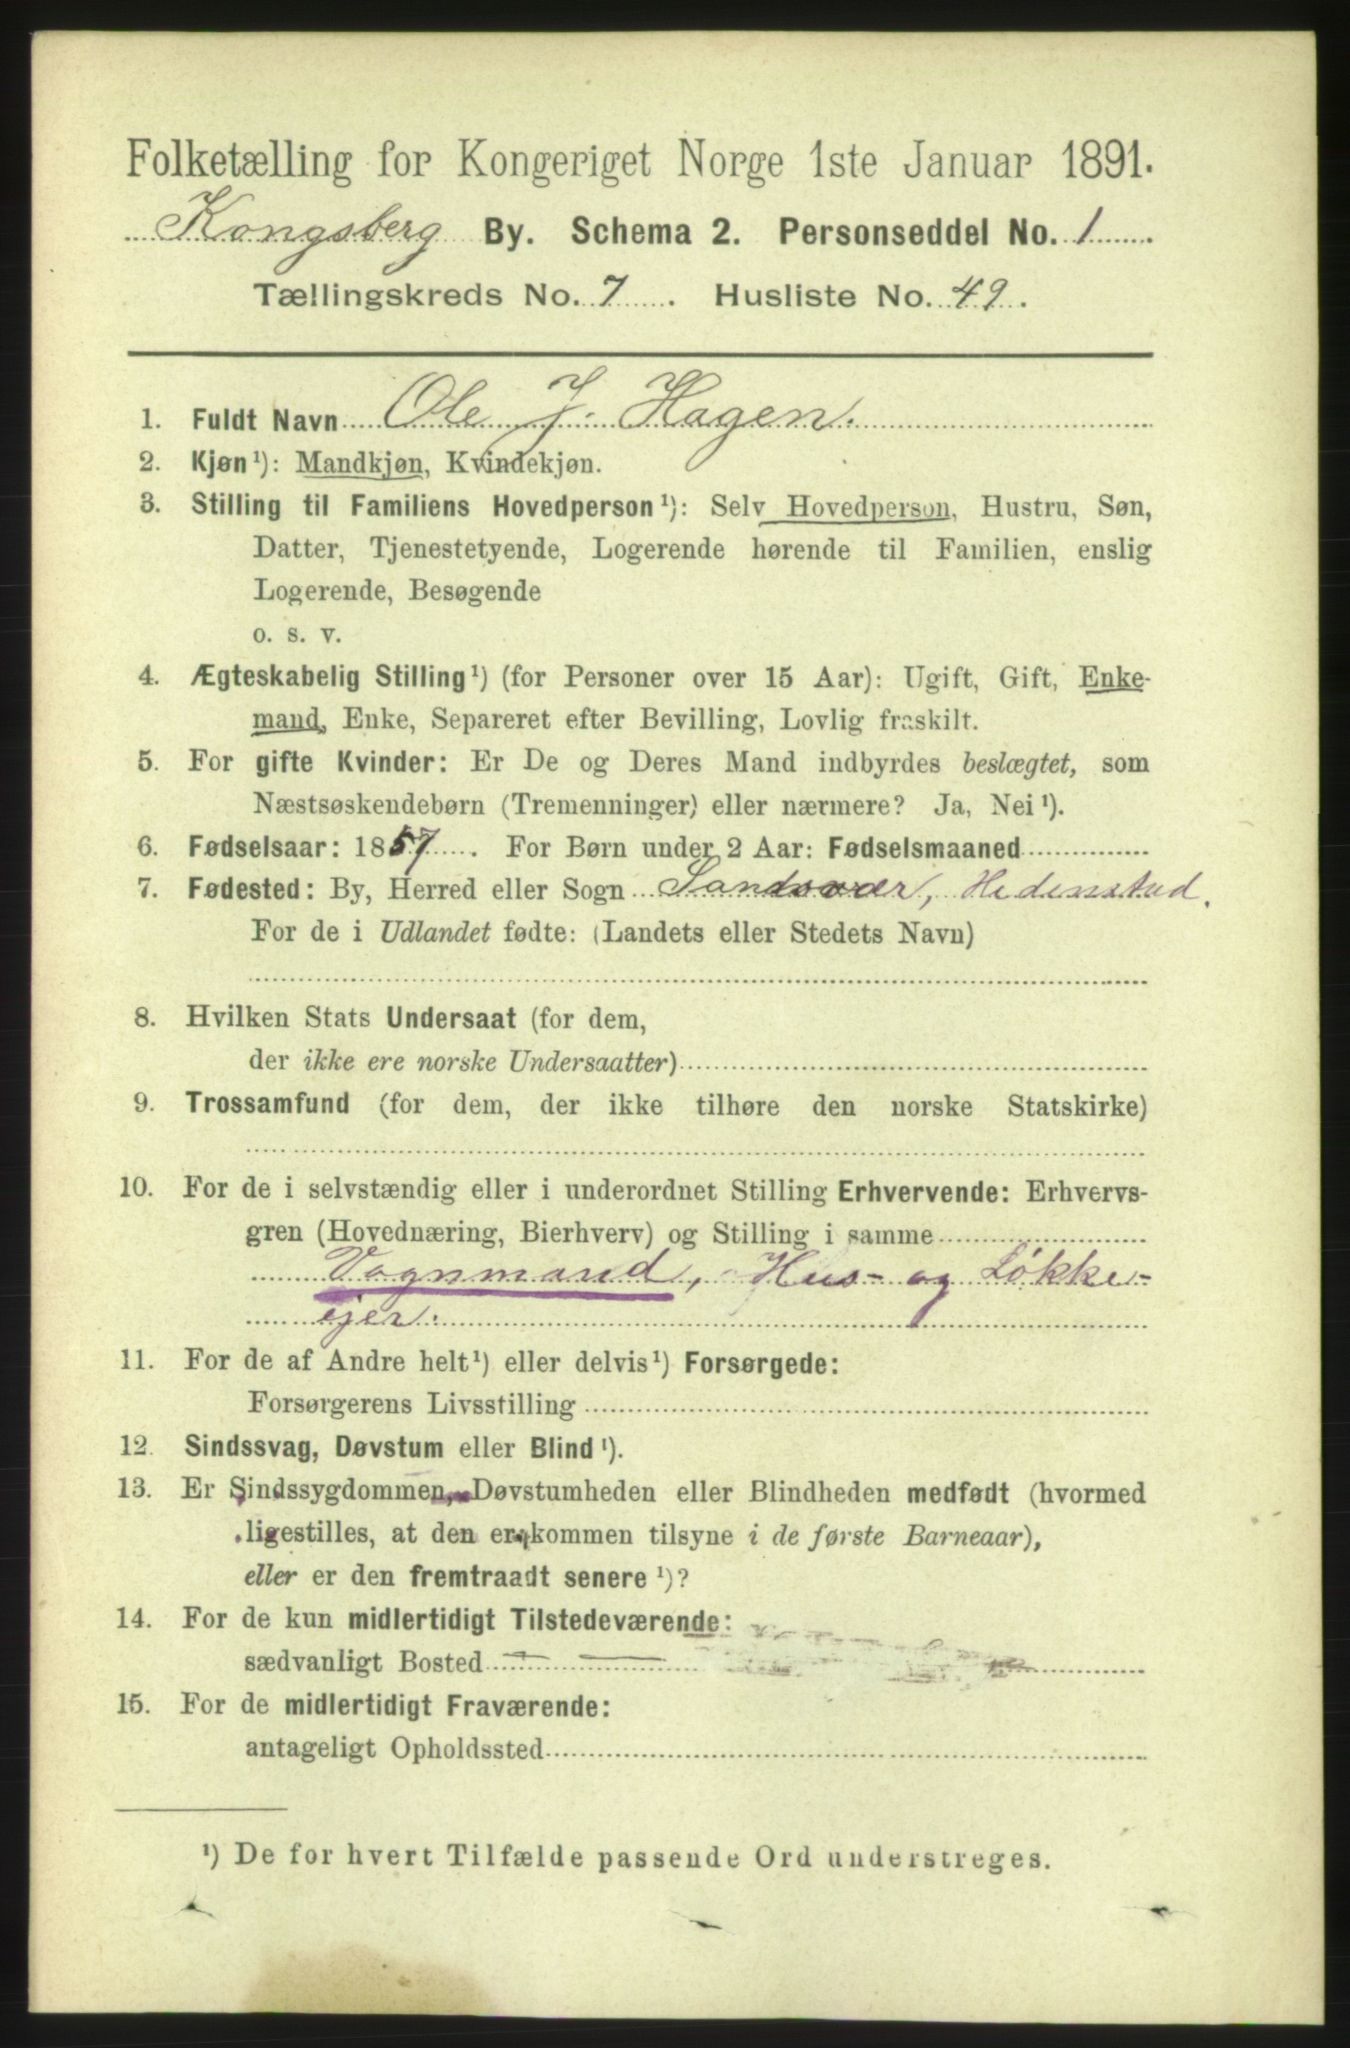 Folketælling for Kongeriget Norge 1ste Januar 1891.
Kongsberg By. Schema 2. Personseddel No. 1
Tællingskreds No. 7. Husliste No. 49.
1. Fuldt Navn Ole J. Hagen.
2. Kjøn¹): Mandkjøn, Kvindekjøn.
3. Stilling til Familiens Hovedperson¹): Selv Hovedperson, Hustru, Søn,
Datter, Tjenestetyende, Logerende hørende til Familien, enslig
Logerende, Besøgende
o. s. v.
4. Ægteskabelig Stilling¹) (for Personer over 15 Aar): Ugift, Gift, Enke-
mand, Enke, Separeret efter Bevilling, Lovlig fraskilt.
5. For gifte Kvinder: Er De og Deres Mand indbyrdes beslægtet, som
Næstsøskendebørn (Tremenninger) eller nærmere? Ja, Nei¹).
6. Fødselsaar: 1857. For Børn under 2 Aar: Fødselsmaaned
7. Fødested: By, Herred eller Sogn Sandsvær, Hedenstad.
For de i Udlandet fødte: (Landets eller Stedets Navn)
8. Hvilken Stats Undersaat (for dem,
der ikke ere norske Undersaatter)
9. Trossamfund (for dem, der ikke tilhøre den norske Statskirke)
10. For de i selvstændig eller i underordnet Stilling Erhvervende: Erhvervs-
gren (Hovednæring, Bierhverv) og Stilling i samme
Vognmand, Hus- og Løkke-
ejer.
11. For de af Andre helt¹) eller delvis¹) Forsørgede:
Forsørgerens Livsstilling
12. Sindssvag, Døvstum eller Blind¹).
13. Er Sindssygdommen, Døvstumheden eller Blindheden medfødt (hvormed
ligestilles, at den er kommen tilsyne i de første Barneaar),
eller er den fremtraadt senere¹)?
14. For de kun midlertidigt Tilstedeværende:
sædvanligt Bosted
15. For de midlertidigt Fraværende:
antageligt Opholdssted
¹) De for hvert Tilfælde passende Ord understreges.